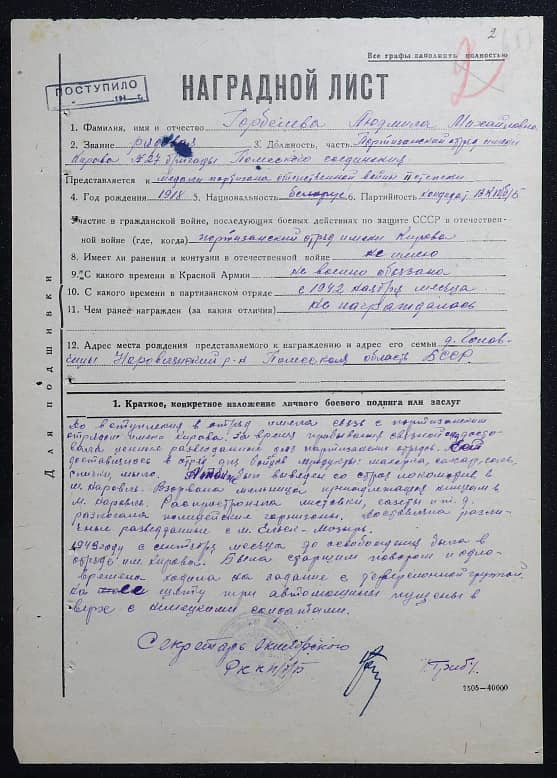 2
Все графы заполнить полностью
ПОСТУПИЛО
НАГРАДНОЙ ЛИСТ
1. Фамилия, имя и отчество Горбелева Людмила Михайловна
2. Звание рядовая 3. Должность, часть Партизанский отряд имени
Кирова №27 бригады Полесского соединения
Представляется к медали партизана отечественной войны II степени
4. Год рождения 1918 5. Национальность беларус 6. Партийность кандидат ВКП/б/Б
Участие в гражданской войне, последующих боевых действиях по защите СССР в отечествен-
ной войне (где, когда) партизанский отряд имени Кирова
8. Имеет ли ранения и контузии в отечественной войне не имею
9. С какого времени в Красной Армии не военно обязана
10. С какого времени в партизанском отряде с 1942 ноября месяца
11. Чем ранее награжден (за какия отличия) не награждалась
12. Адрес места рождения представляемого к награждению и адрес его семьи д.
Наровлянский р-н Полесская область БССР.
Для подшивки
1. Краткое, конкретное изложение личного боевого подвига или заслуг
До вступления в отряд имела связь с партизанским
отрядом имени Кирова. За время пребывания связной
ценные разведданные для партизанских отрядов.
доставлялись в отряд для бойцов продукты: махорка, соль,
спички, мыло. был выведен со строя локомобиль в
м. Наровле. Взорвана мельница принадлежащая немцам в
м. Наровле. Распространяла листовки, газеты и т. д.
разлагала полицейские гарнизоны. Доставляла различ-
ные разведданные с м. Ельск-Мозырь.
1943 году с сентября месяца до освобождения была в
отряде им. Кирова. Была старшим поваром и одно-
временно ходила на задание с диверсионной группой.
На шляху три автомашины пущены в
верх с немецкими солдатами.
Секретарь
РК КП/б/Б
1305—40000